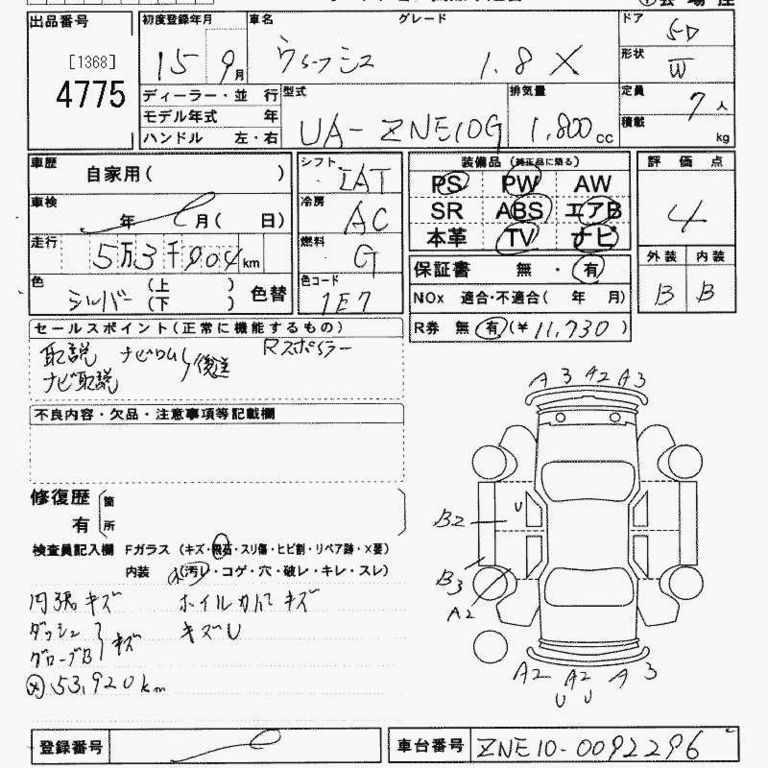 出品番号
[1368]
4775
初度登録年月
15 9月
車名
グレード
1.8 X
ドア
5D
形状
W
ディーラー・並 行
モデル年式 年
ハンドル 左・右
型式
UA-ZNE10G
排気量
1,800cc
定員
7人
積載
kg
車歴
自家用( )
車検
年 月( 日)
走行
5万3千904km
色
シルバー
(上 )
(下 )
色替
シフト
IAT
冷房
AC
燃料
G
色コード
1E7
装備品 (純正品に限る)
PS PW AW
SR ABS エアB
本革 TV ナビ
保証書 無・有
NOx 適合・不適合( 年 月)
R券 無 有(¥11,730)
評価点
4
外装 内装
B B
セールスポイント(正常に機能するもの)
取説 ナビROM 後送 Rスポイラー
ナビ取説
不良内容・欠品・注意事項等記載欄
修復歴
有
箇所
検査員記入欄 Fガラス (キズ・飛石・スリ傷・ヒビ割・リペア跡・X要)
内装 (汚レ・コゲ・穴・破レ・キレ・スレ)
内張キズ ホイルカバーキズ
ダッシュ キズ キズU
グローブB
53,920km
A3 A2 A3
U
B2
B3
A2
A2 A2 A3
U U
登録番号
車台番号 ZNE10-0092296